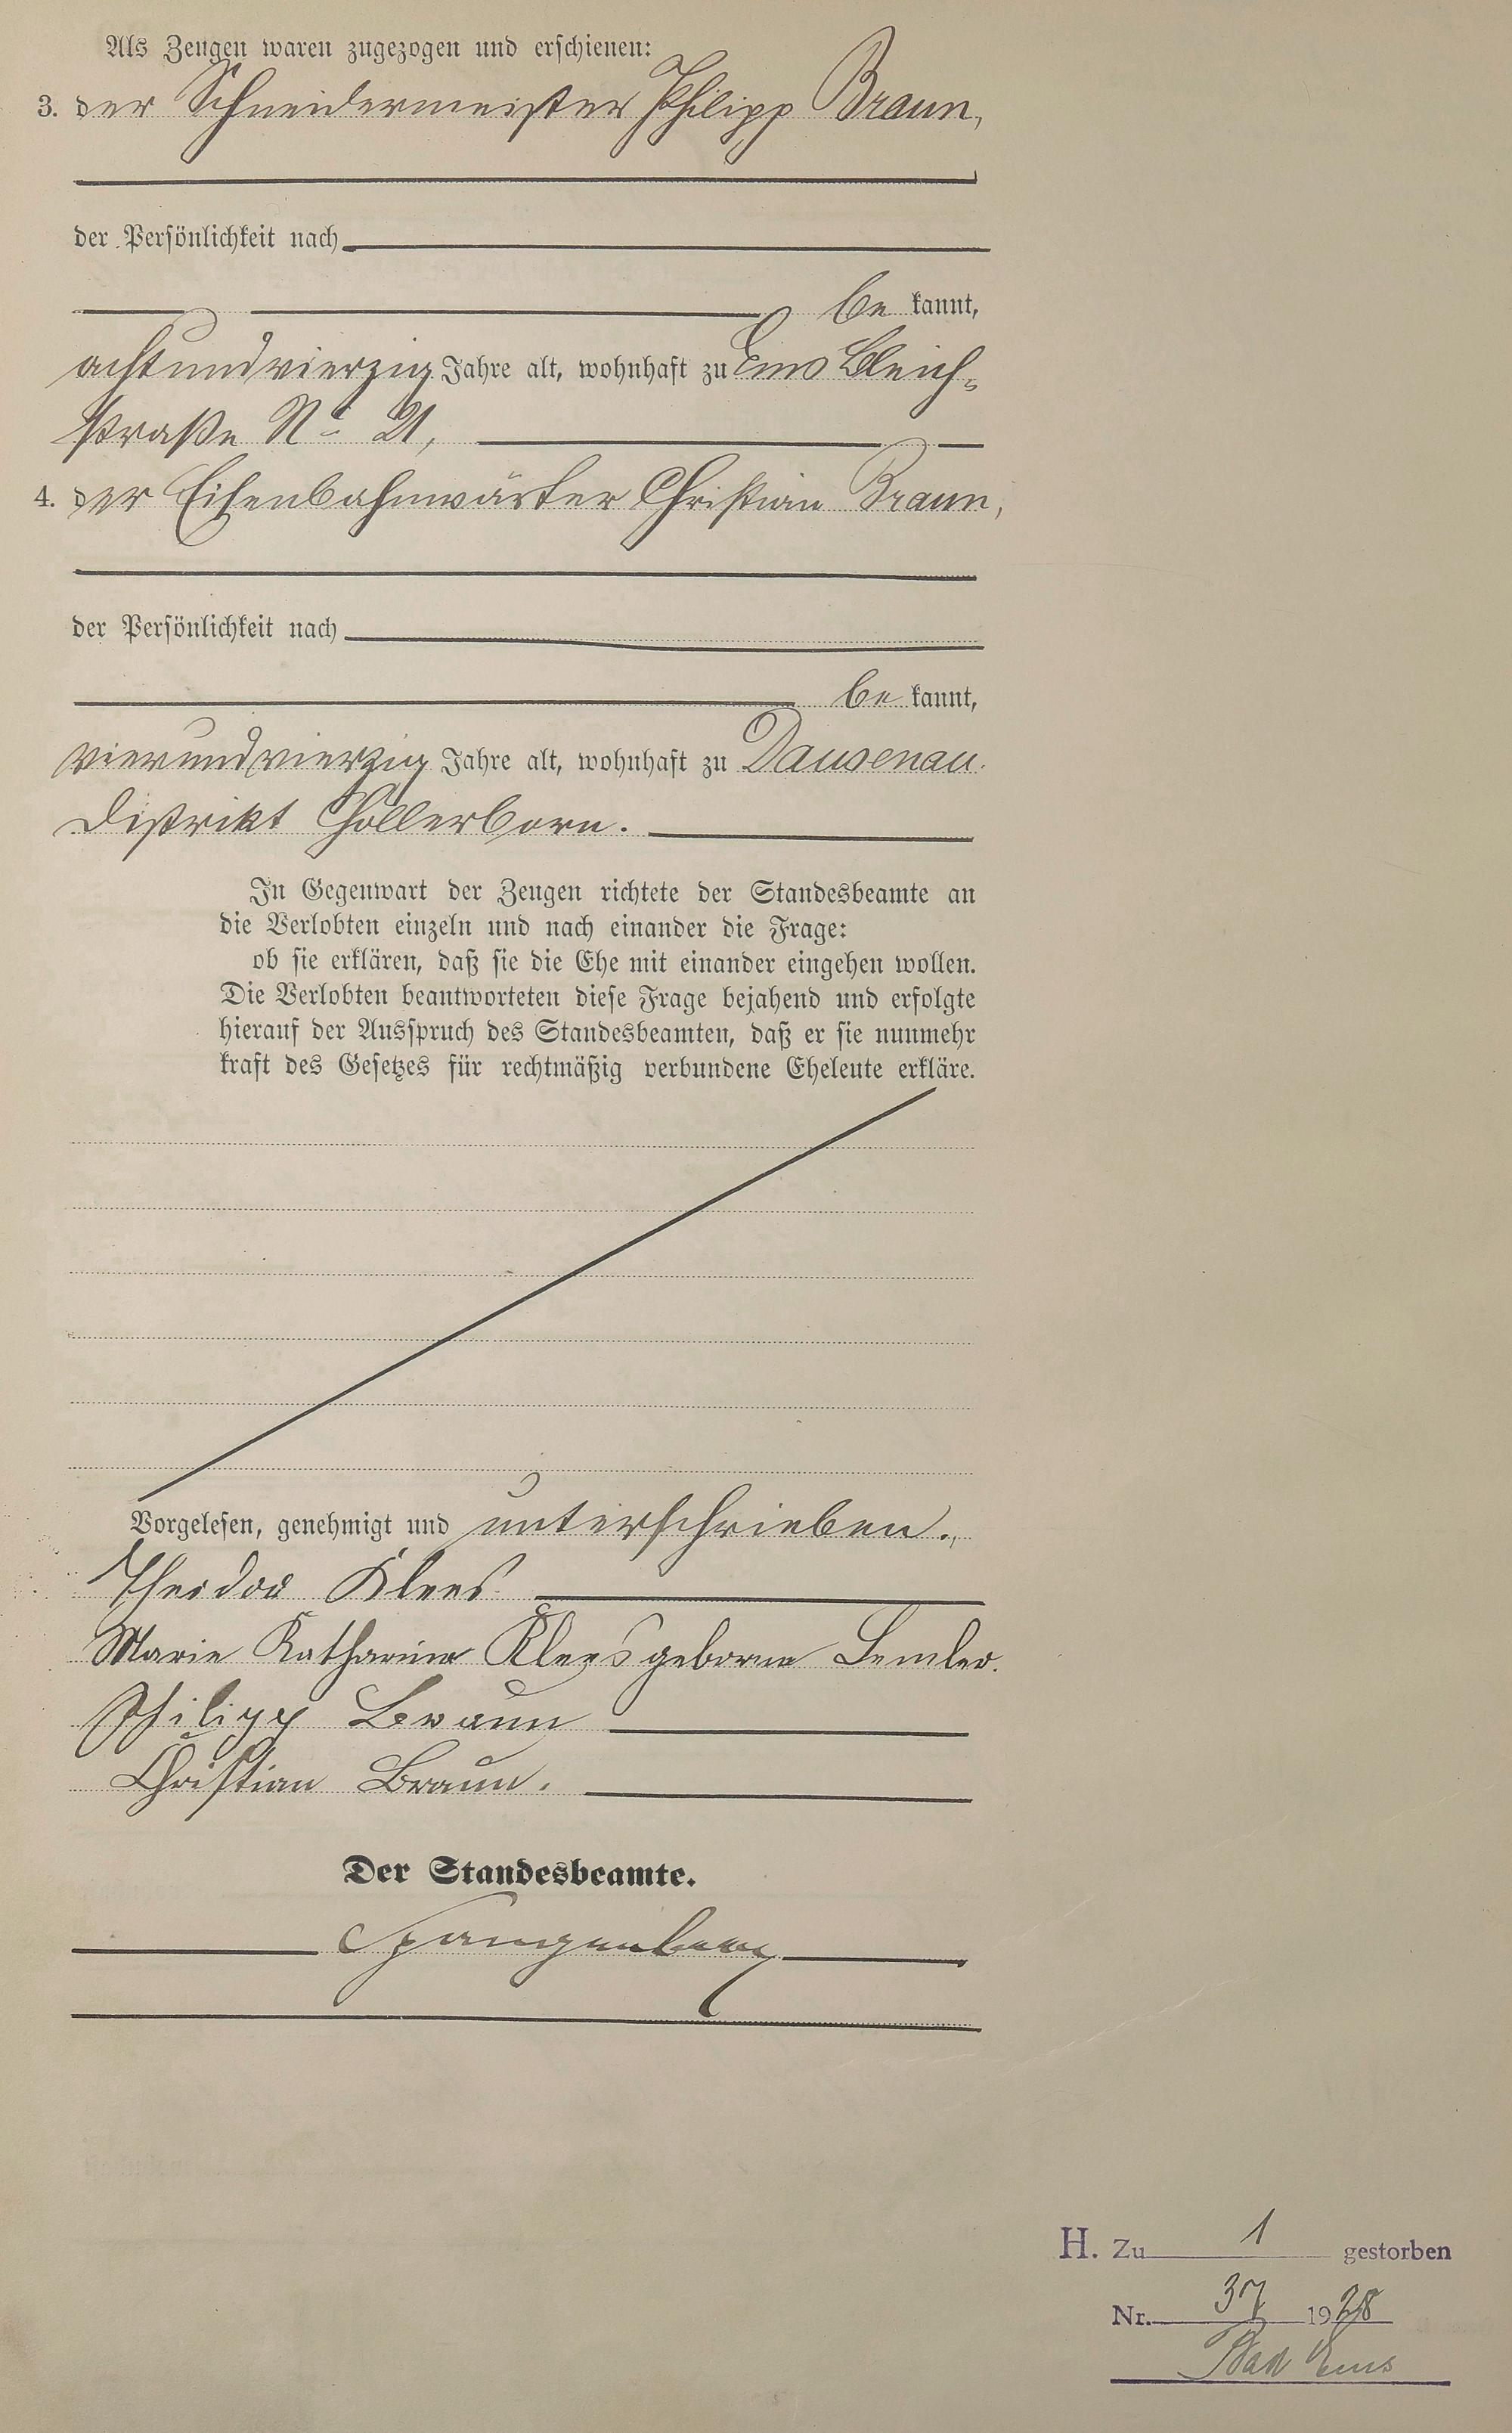 Als Zeugen waren zugezogen und erschienen:
3. der Schneidermeister Philipp Braun,
der Persönlichkeit nach
be kannt,
achtundvierzig Jahre alt, wohnhaft zu Ems Bleich-
straße No 21,
4. der Eisenbahnwärter Christian Braun,
der Persönlichkeit nach
be kannt,
vierundvierzig Jahre alt, wohnhaft zu Dausenau.
Distrikt Hollerborn.
In Gegenwart der Zeugen richtete der Standesbeamte an
die Verlobten einzeln und nach einander die Frage:
ob sie erklären, daß sie die Ehe mit einander eingehen wollen.
Die Verlobten beantworteten diese Frage bejahend und erfolgte
hierauf der Ausspruch des Standesbeamten, daß er sie nunmehr
kraft des Gesetzes für rechtmäßig verbundene Eheleute erkläre.
Vorgelesen, genehmigt und unterschrieben.
Theodor Klees
Marie Katharina Klees geborne Lemler.
Philipp Braun
Christian Braun.
Der Standesbeamte.
Spangenberg
H. Zu 1 gestorben
Nr. 37 1928
Bad Ems